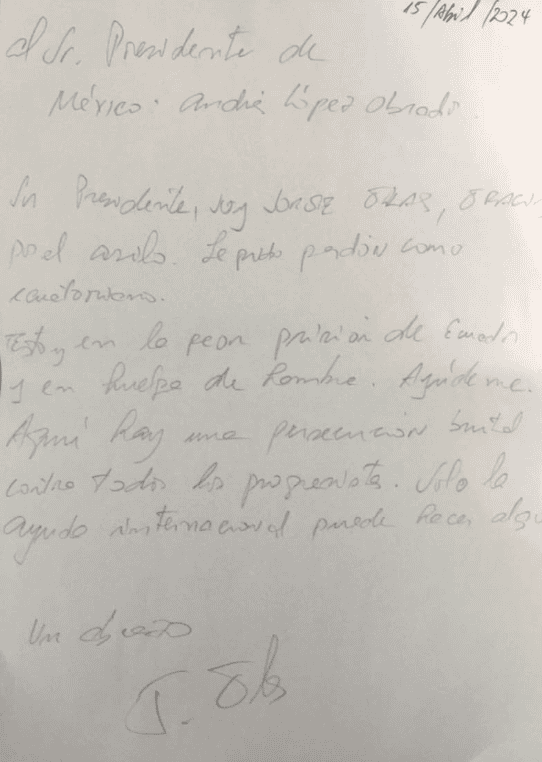 15/Abril/2024
Al Sr. Presidente de
México: Andrés López Obrador.
Sr Presidente, soy JORGE GLAS, GRACI
por el asilo. Le pido perdón como
ecuatoriano.
Estoy en la peor prisión de Ecuador
y en huelga de hambre. Ayúdeme.
Aquí hay una persecución brutal
contra todos los progresistas. Solo la
ayuda internacional puede hacer algo
Un abrazo
J. Glas